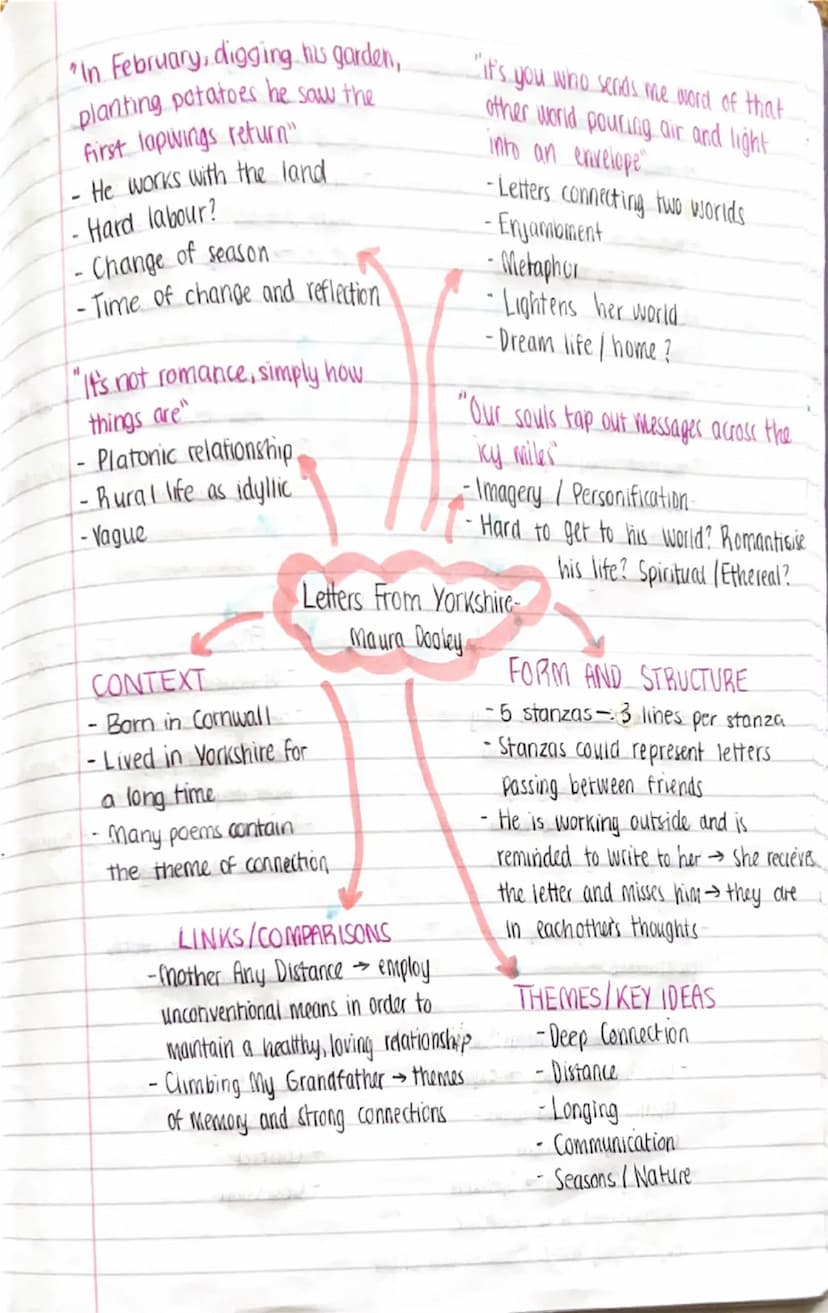 "In February, digging his garden,
planting potatoes he saw the
first lapwings return"
- He works with the land
- Hard labour?
- Change of season
- Time of change and reflection
"it's you who sends me word of that
other world pouring air and light
into an envelope"
- Letters connecting two worlds
- Enjambment
- Metaphor
- Lightens her world
- Dream life / home?
"It's not romance, simply how
things are"
- Platonic relationship
- Rural life as idyllic
- Vague
"Our souls tap out messages across the
icy miles"
- Imagery / Personification
- Hard to get to his world? Romanticise
his life? Spiritual / Ethereal?
Letters From Yorkshire-
Maura Dooley
CONTEXT
- Born in Cornwall
- Lived in Yorkshire for
a long time
- Many poems contain
the theme of connection
FORM AND STRUCTURE
- 5 stanzas - 3 lines per stanza
- Stanzas could represent letters
passing between friends
- He is working outside and is
reminded to write to her → she recieves
the letter and misses him → they are
in eachothers thoughts
LINKS/COMPARISONS
- Mother Any Distance → employ
unconventional means in order to
maintain a healthy, loving relationship
- Climbing My Grandfather → themes
of memory and strong connections
THEMES/KEY IDEAS
- Deep Connection
- Distance
- Longing
- Communication
- Seasons / Nature